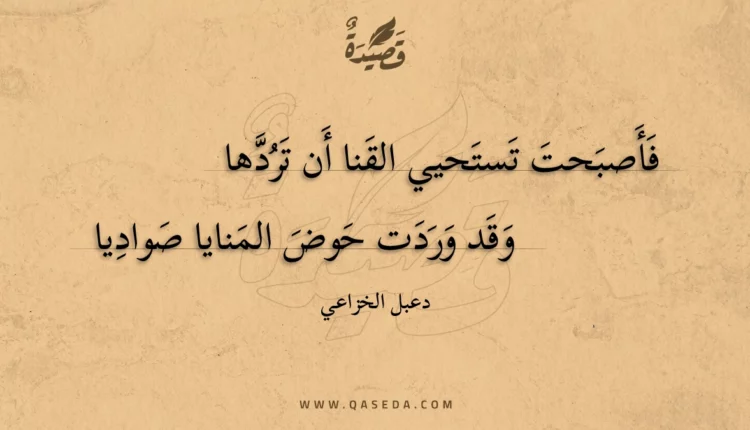 قَصِيْدَةٌ
فَأَصبَحتَ تَستَحيي القَنا أَن تَرُدَّها
وَقَد وَرَدَت حَوضَ المَنايا صَوادِيا
دعبل الخزاعي
WWW.QASEDA.COM